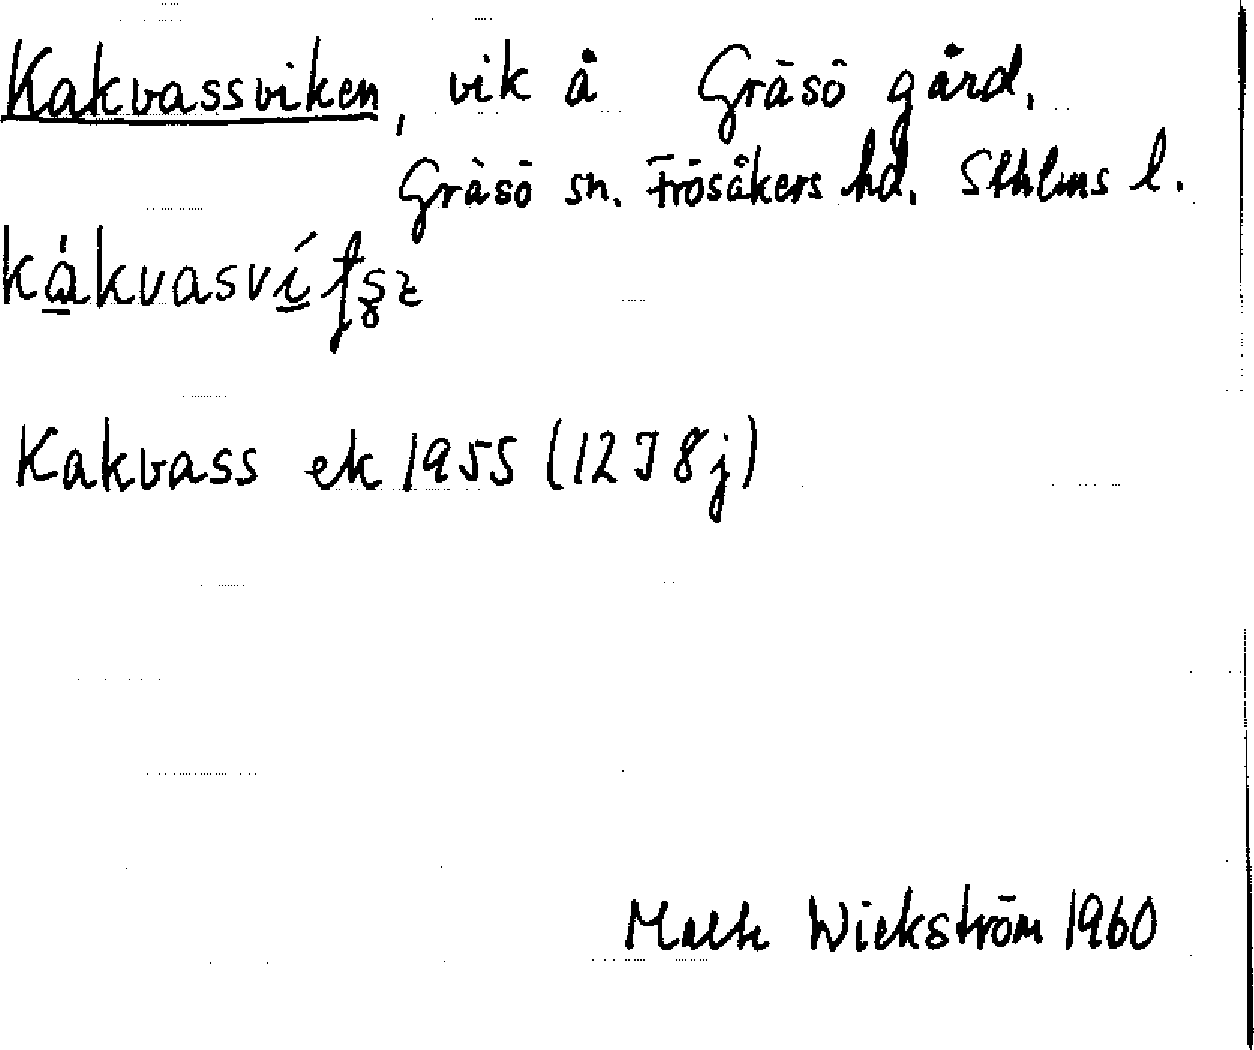 Kakvassviken, vik å Gräsö gård,
Gräsö sn. Frösåkers hd. Sthlms l.
Kakvass ek 1955 (12 I 8j)
Wickström 1960